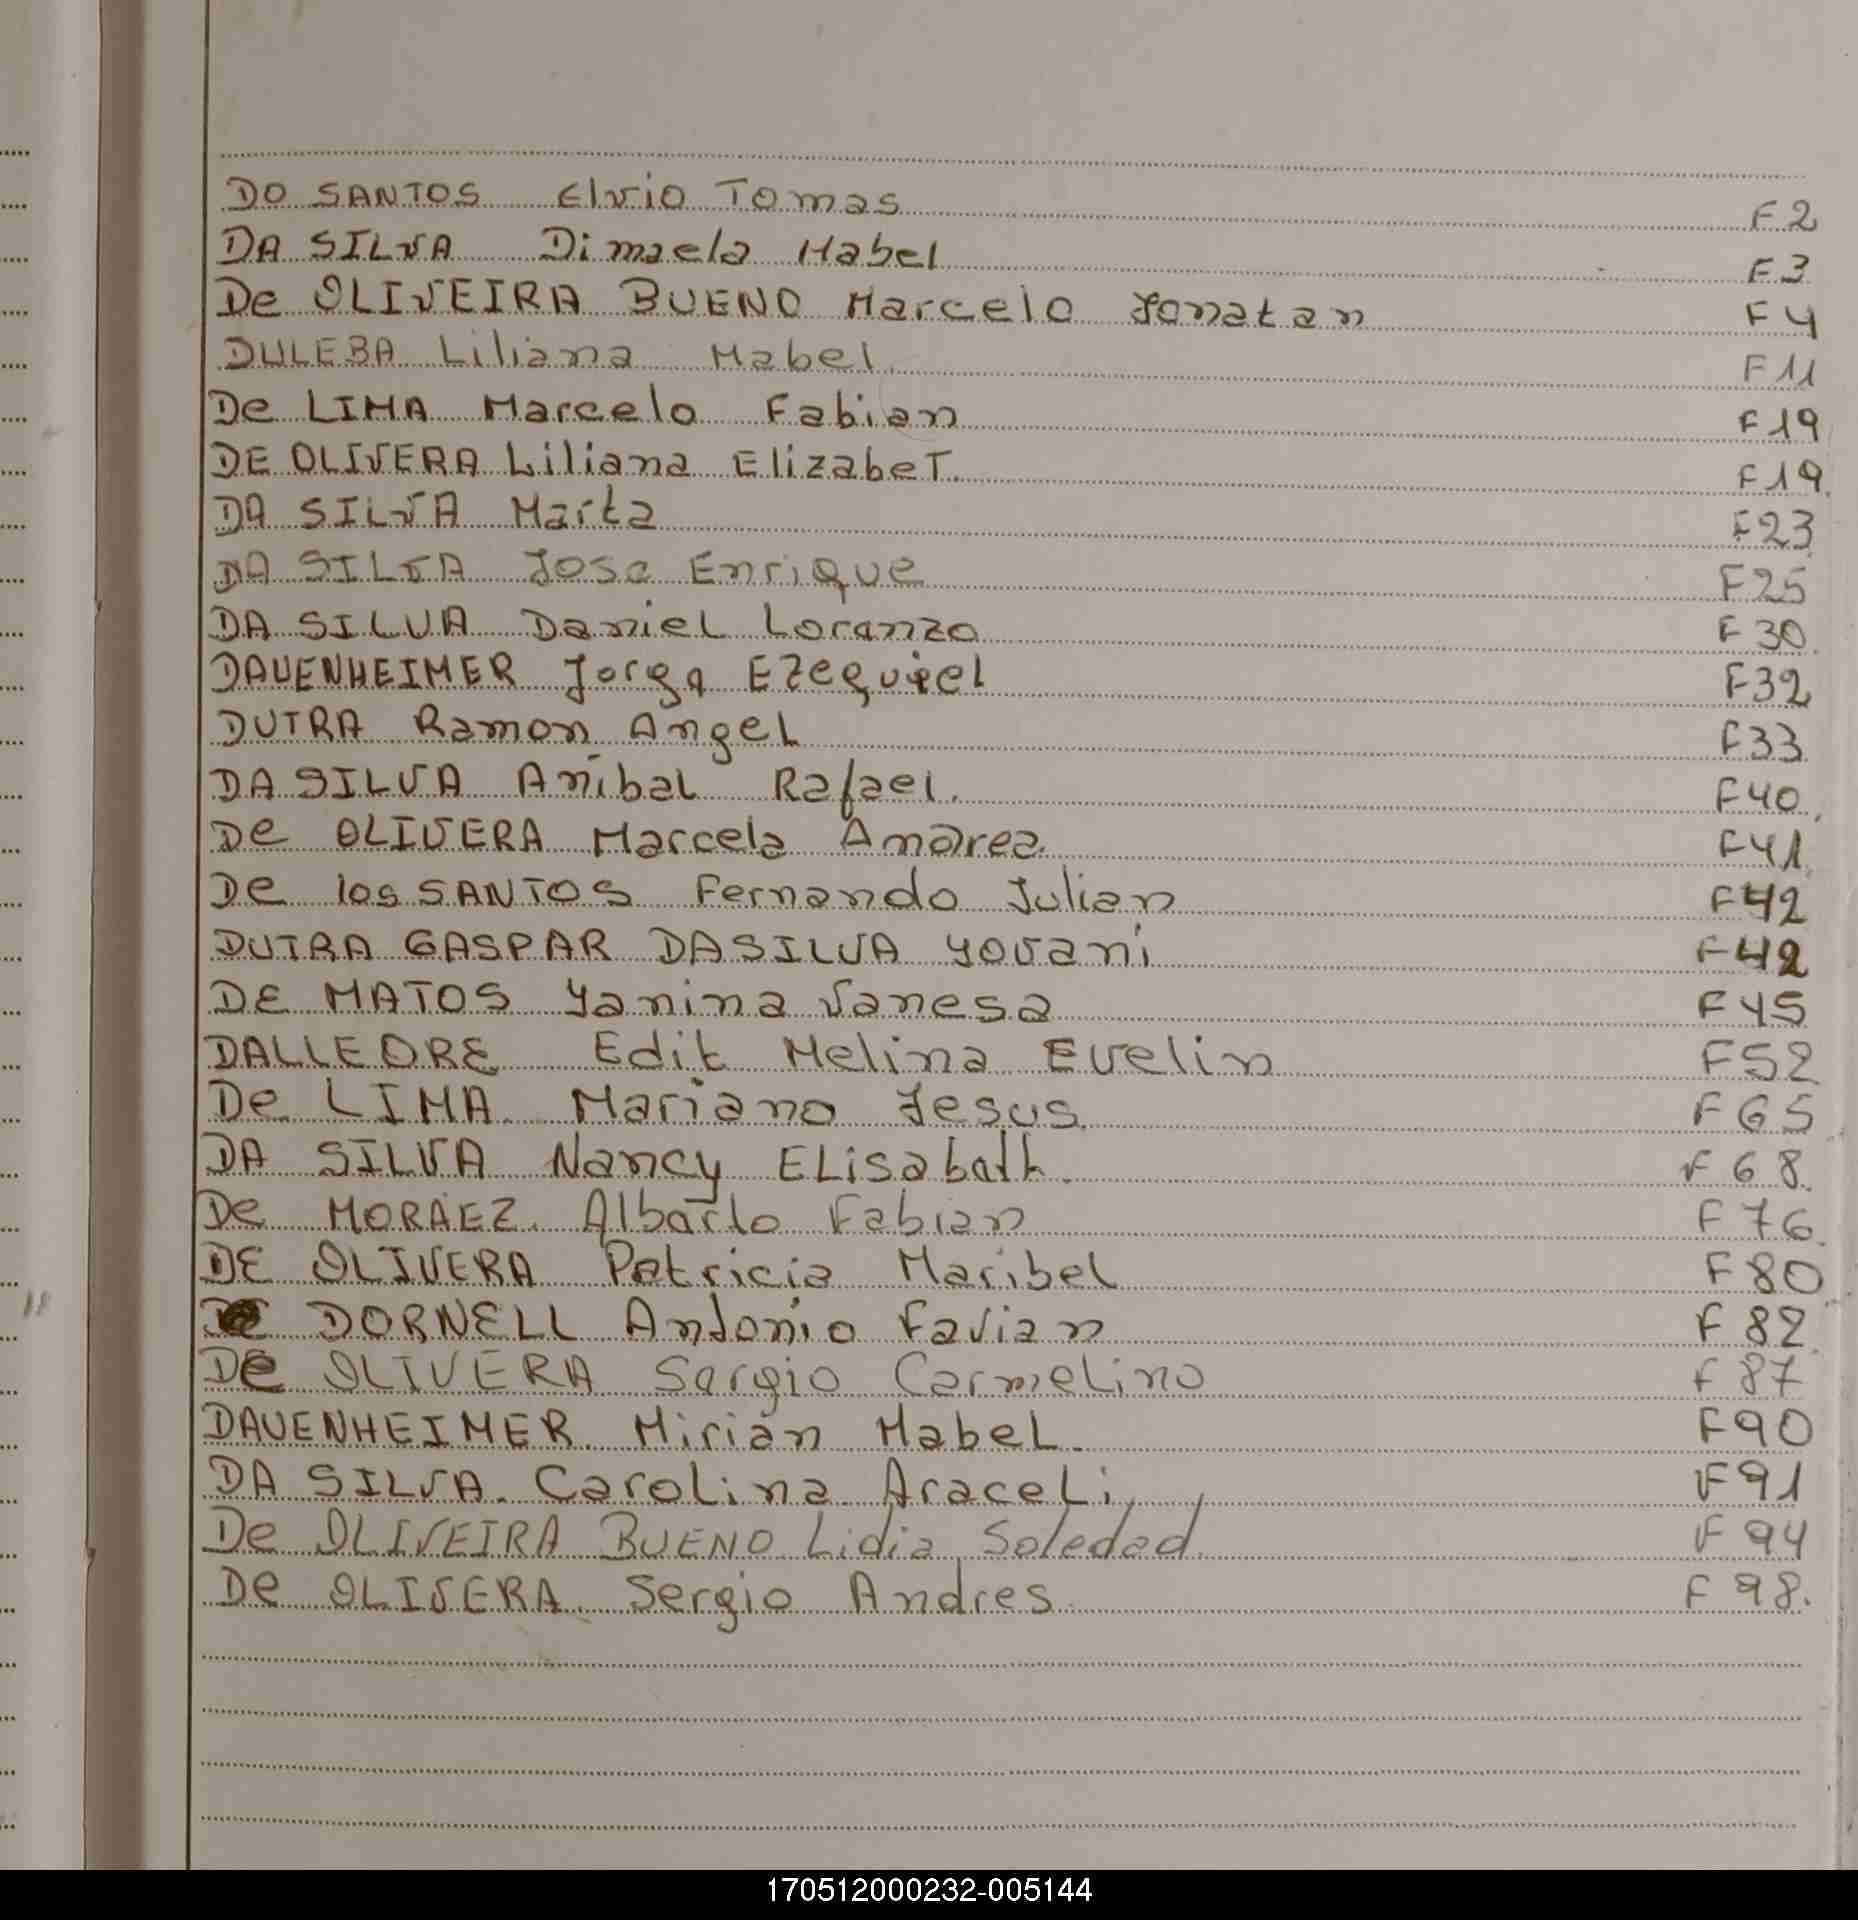 DO SANTOS Elvio Tomas F2
DA SILVA Dimaela Mabel F3
De OLIVEIRA BUENO Marcelo Jonatan F4
DULEBA Liliana Mabel F11
De LIMA Marcelo Fabian F19
DE OLIVERA Liliana ElizabeT. F19
DA SILVA Marta F23
DA SILVA Jose Enrique F25
DA SILVA Daniel Loranzo F30
DAUENHEIMER Jorga Ezequiel F32
DUTRA Ramon Angel F33
DA SILVA Anibal Rafael. F40
De OLIVERA Marcela Andrea F41
De los SANTOS Fernando Julian F42
DUTRA GASPAR DASILVA Yovani F42
DE MATOS Yanina Vanesa F45
DALLEORE Edit Melina Evelin F52
De LIMA. Mariano Jesus F65
DA SILVA Nancy ELisabath. F68
De MORAEZ. Albarto Fabian F76
DE OLIVERA Patricia Maribel F80
DORNELL Antonio Favian F82
De OLIVERA Sargio Carmelino F87
DAUENHEIMER Mirian Mabel. F90
DA SILVA. Carolina Araceli F91
De OLIVEIRA BUENO Lidia Soledad F94
De OLIVERA. Sergio Andres F98.
18
170512000232-005144